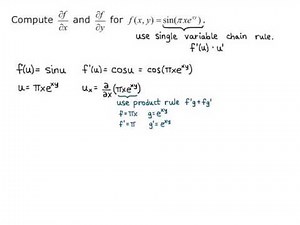 Compute ∂f/∂x and ∂f/∂y for f(x, y) = sin(πxe^{xy}).
use single variable chain rule.
f'(u) · u'
f(u) = sinu f'(u) = cosu = cos(πxe^{xy})
u = πxe^{xy} u_x = ∂/∂x (πxe^{xy})
use product rule f'g + fg'
f = πx g = e^{xy}
f' = π g' = e^{xy}